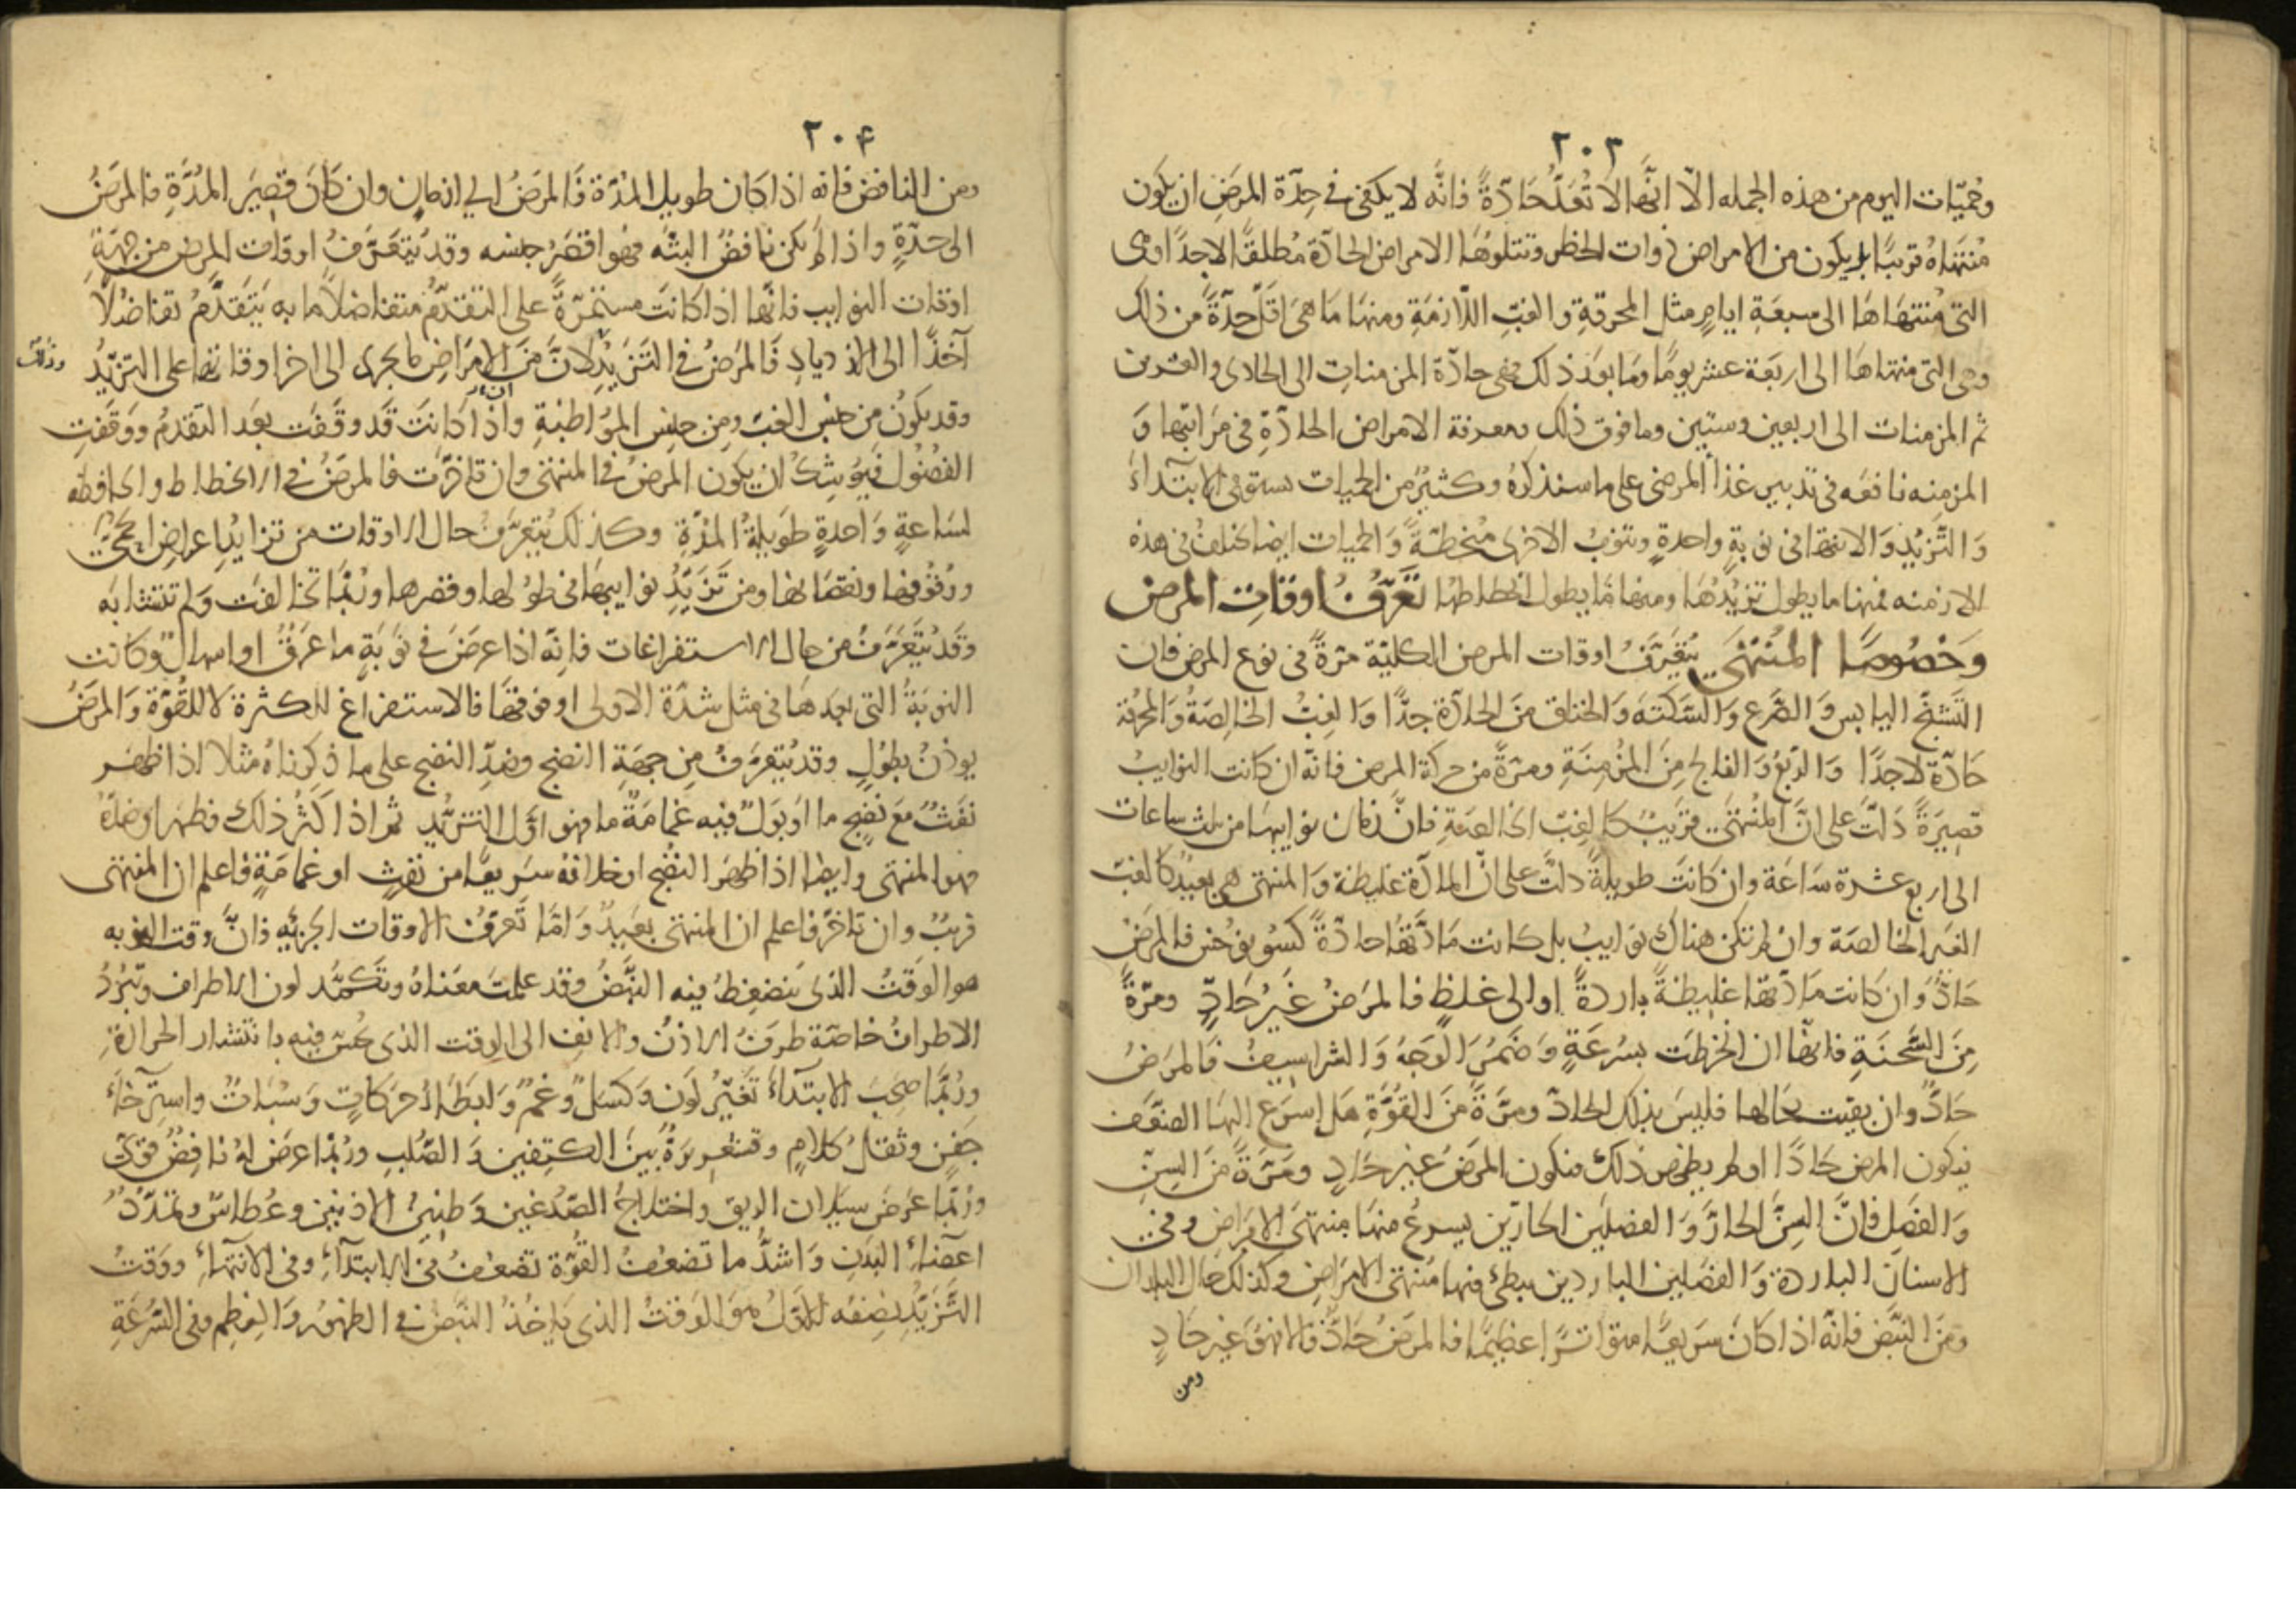 ٢٠٣
وحميّات اليوم من هذه الجمله الّا انّها لا تُعَدُّ حَادّةً فانّه لا يكفى فى حِدّة المرَضِ ان يكون
مُنتهَاهُ قريبًا بل يكون من الامراض ذوات الخطر وتتلوهَا الامراض الحادّة مُطلقًا لا جدًا وهى
التى مُنتهَاهَا الى سبعَةِ ايامٍ مثل المحرقةِ والغبِّ اللّازمَةِ ومنهَا مَا هىَ اقلّ حِدّةً من ذلك
وهى التى منتهاهَا الى اربَعَة عشر يومًا ومَا بعَد ذلك فهى حادّة المزمناتِ الى الحادى والعشرين
ثم المزمنات الى اربعين وستين وما فوق ذلك ومعرفة الامراض الحادّةِ فى مَراتبها وَ
المزمنه نافعَه فى تدبير غذاَ المرضى على ما سنذكرُهُ وكثيرٌ من الحميات تستوفى الابتداءَ
وَالتَّزيّدِ وَالانتها فى نوبةٍ واحدةٍ وتنوبُ الاخرى مُنحطّةً وَالحميات ايضا تختلفُ فى هذه
الازمنه فمنها ما يطول تزيُّدُهَا ومنها مَا يطول انحطاطهَا تَعَرّفُ اوقاتِ المرض
وَخصُوصًا المُنتهَى يُتعَرَّفُ اوقات المرض الكليّة مرّةً من نوع المرض فان
التَشنجَ اليابس وَالصَّرع وَالسَّكتَه وَالخناق منَ الحادّة جدًّا وَالغِبُّ الخالِصَةُ وَالمحرقة
حَادّة لا جدًا وَالرّبعُ وَالفالج مِنَ المزمِنَةِ ومرّةً من حركة المرض فانّه ان كانت النوايبُ
قصِيرَةً دَلتْ على انَّ المُنتهَى قريبٌ كالغِبّ الخالصَةِ فانَّ زمان نوايبهَا من ثلث ساعات
الى اربع عشرة سَاعَة وان كَانتَ طويلةً دلتْ على انّ المادّة غليظة وَالمنتهى بعيدٌ كالغبّ
الغير الخالصَة وان لم تكن هناك نوايبُ بل كانت مَادّتهَا حادّةً كسُونوخُس فالمرَضُ
حَادٌّ وَان كانت مَادّتهَا غليظةً باردةً او الى غلظٍ فالمرَضُ غيرُ حَادٍّ ومرّةً
مِنَ السَّحنَةِ فانّهَا ان انخرطت بسُرعَةٍ وَضَمُرَ الوَجهُ وَالشراسيفُ فالمرَضُ
حَادٌ وان بقيت بحَالهَا فليسَ بذلك الحادّ ومرّةً منَ القُوّةِ هَل اسرَع اليهَا الضعفُ
فيكون المرض حَادًّا او لم يظهر ذلك فيكون المرَضُ غير حَادٍ ومَرّةً منَ السِنِّ
وَالفصَل فانَّ السِنَّ الحارَّ وَالفصلَين الحارّين يسرعُ منهَا منتهَى الامرَاض وفى
الاسنانِ الباردة وَالفصَلين الباردين يبطئ فيها مُنتهى الامرَاضِ وكذلك حَال البلدان
ومنَ النبَّض فانّه اذا كَان سَريعًا متواترًا عظيمًا فالمرَضُ حَادٌّ فالا فهوَ غير حَادٍ
ومن
٢٠٤
ومن النافض فانه اذا كان طويل المدّة فَالمرَضُ الى ازمانٍ وان كَانَ قصِيرَ المُدَّةِ فالمرَضُ
الى حدّةٍ واذا لم يكن نَافضُ البتّه فهو اقصَرُ جنسه وقد يُتعَرّفُ اوقات المرض من جهَةِ
اوقات النوايب فانهَا اذا كانتَ مستمرّةً على التقدّم متفاضلاً ما به يَتقدَّمُ تفاضُلاً
آخذًا الى الازديادِ فَالمرَضُ فى التَّزيُّدِ لانّ منَ الامرَاضِ ما يجرى الى اخر اوقاتها على التزيّدُ
وقد يكونُ من جنس الغبّ ومِن جنِس المُوَاظبَةِ واذا كانتَ قَد وقَفَت بعَد التَقدمُ ووَقفت
الفصُول فَيُوشِكُ ان يكون المرضُ فى المنتهى وان تاخرَّت فالمرَضُ فى الانحطاط والحافظه
لسَاعةٍ وَاحدةٍ طَويلةُ المدّةِ وكذلك يُتعَرَّفُ حال الاوقات من تزايُدِ اعراضِ الحمَّى
ووُقوُفهَا ونقصَانهَا ومن تَزيّدُِ نوايبهَا فى طوُلهَا وقصَرهَا ورُبّمَا تخالفَت وَلم تتشابَه
وقَد يُتعَرَّفُ من حال الاستفراغات فانِهّ اذا عرَضَ فى نَوبَةٍ ما عَرَقٌ او اسهالٌ وكانت
النوبَةُ التى بعدهَا فى مثل شدّة الاولى او فوقهَا فالاستفراغ للكثرة لا للقُوّة وَالمرَضُ
يوذنُ بطُولٍ وقد يُتعَرَّفُ مِن جهَةِ النضج وضِدِّ النضج على ما ذكرناهُ مثلا اذا ظهَر
نفثٌ مَعَ نُضجٍ ما اَو بَولٌ فيه غمَامَةٌ ما فهو اوّل التزيُّدِ ثم اذا اكثر ذلك فظهر او ضدّهُ
فهو المنتهى وايضا اذا ظهَرَ النُضج او خلافهُ سَريعًا من نَفثٍ او غمامَةٍ فاعلم ان المنتهى
قريبٌ وان تاخرّ فاعلم ان المنتهى بعَيدٌ وَامّا تَعرّفُ الاوقات الجزئيَّه فانَّ وقت النوبه
هو الوَقتُ الذى يَنضغطُ فيه النبَّضُ وقد علمتَ معَناهُ وتكمّد لون الاطراف وتبرُدُ
الاطرافُ خاصّة طرفُ الاذن والانف الى الوقت الذى يحُسُّ فيه بانتشار الحرارة
ورُبّمَا صَحِبَ الابتداءَ تَغيّرُ لَونٍ وَكسَلٌ وَغمٌّ وَابطَاءُ حَرَكاتٍ وَسُبَاتٌ واسترخاءُ
جَفنٍ وثقلُ كلامٍ وقشعريرَةٌ بَينَ الكتِفين وَالصّلب ورُبّمَا عرَض لهُ نافضٌ قوىّ
ورُبّمَا عَرَضَ سيَلان الريق واختلاجُ الصّدغين وَطنينُ الاذنين وعُطاسٌ وتمَدّدُ
اعضَاءِ البَدن وَاشدُّ ما تضعُف القُوّة تضعُفُ فى الابتدَاءِ وفى الانتهاءِ ووَقتُ
التَّزيّدُ بنصفه الاوّل هوَ الوَقتُ الذى يَاخذُ النبّضُ فى الظهورِ وَالعِظم وفى السُّرعَةِ